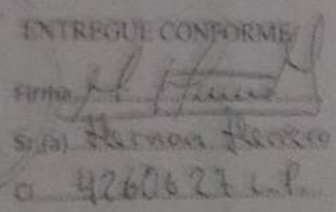 ENTREGUE CONFORME
Firma
Sr.(a) Hernan
CI 4260627 L.P.